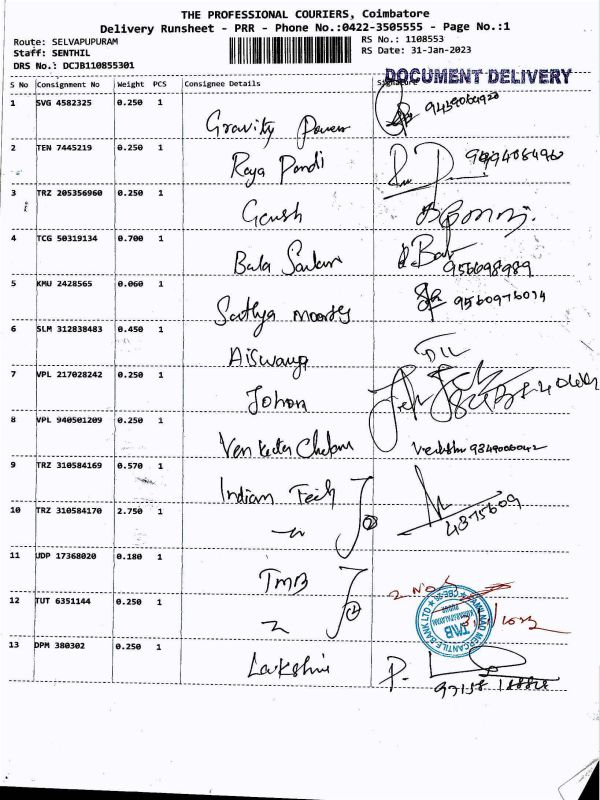 THE PROFESSIONAL COURIERS, Coimbatore
Delivery Runsheet - PRR - Phone No.:0422-3505555 - Page No.:1
Route: SELVAPUPURAM
RS No.: 1108553
Staff: SENTHIL
RS Date: 31-Jan-2023
DRS No.: DCJB110855301
DOCUMENT DELIVERY
S No Consignment No Weight PCS Consignee Details Signature
1 SVG 4582325 0.250 1
Gravity Power
2 TEN 7445219 0.250 1
Raya Pandi
3 TRZ 205356960 0.250 1
Ganesh
4 TCG 50319134 0.700 1
Bala
956698989
5 KMU 2428565 0.060 1
Sathya Moorthy 9560976074
6 SLM 312838483 0.450 1
Aiswarya
7 VPL 217028242 0.250 1
8 VPL 940501209 0.250 1
9349006042
9 TRZ 310584169 0.570 1
Indian Tech
10 TRZ 310584170 2.750 1
2
4375609
11 UDP 17368020 0.180 1
TMB
12 TUT 6351144 0.250 1
2
TAMILNAD MERCANTILE BANK LTD
TMB
13 DPM 380302 0.250 1
Lakshmi